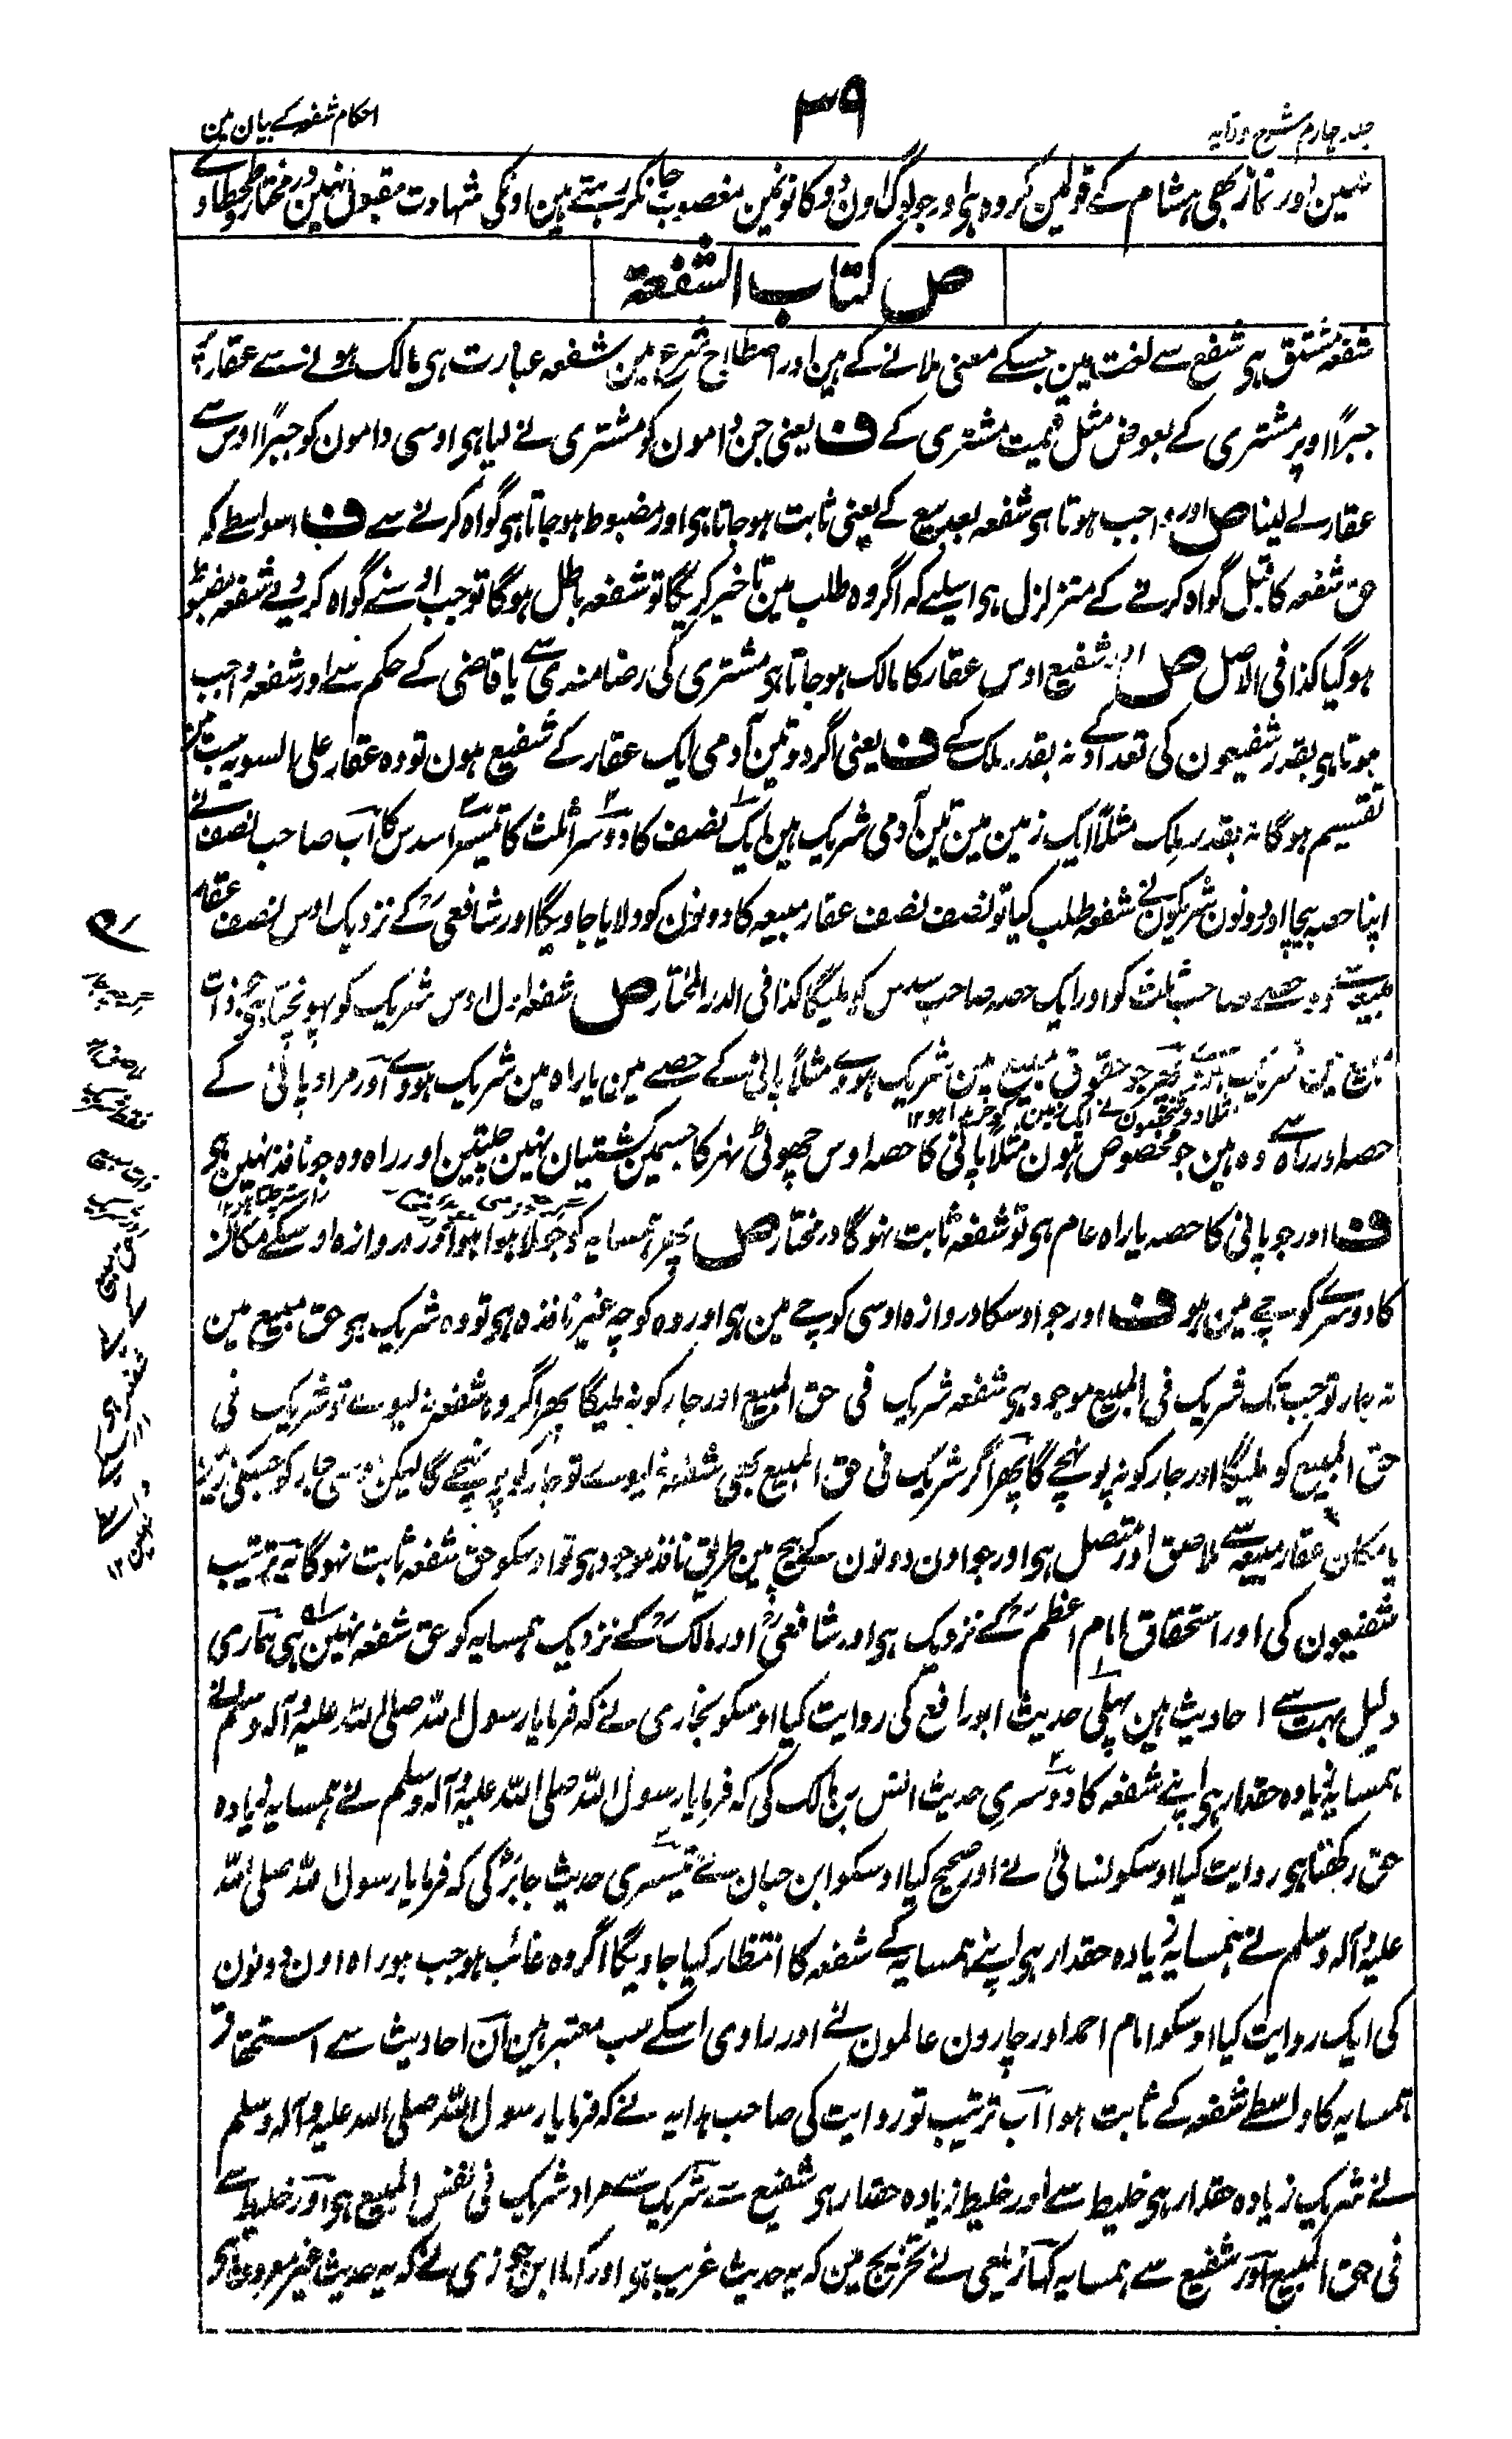 جلد چہارم شرح وقایہ
۳۹
احکام شفعہ کے بیان مین
نہین اور نماز بھی ہشام کے قولمین مکروہ ہی اور جو لوگ اون دوکانونمین مغصوب جانکر رہتے ہین اونکی شہادت مقبول نہین درمختار وطحطاوے
ص کتاب الشفعة
شفعہ مشتق ہی شفع سے لغت مین جسکے معنی ملانے کے ہین اور اصطلاح شرع مین شفعہ عبارت ہی مالک ہونے سے عقار کے
جبراً اوپر مشتری کے بعوض مثل قیمت مشتری کے ف یعنی جن دامون کو مشتری نے لیا ہی اوسی دامون کو جبراً اوس سے
عقار لے لینا ص اور واجب ہوتا ہی شفعہ بعد بیع کے یعنی ثابت ہوجاتا ہی اور مضبوط ہوجاتا ہی گواہ کرنے سے ف اسواسطے کہ
حق شفعہ کا قبل گواہ کرتے کے متزلزل ہی اسلیے کہ اگر وہ طلب مین تاخیر کریگا تو شفعہ باطل ہوگا تو جب اوسنے گواہ کر دیے شفعہ مضبوط
ہوگیا کذا فی الاصل ص اور شفیع اوس عقار کا مالک ہوجاتا ہی مشتری کی رضامندی سے یا قاضی کے حکم سے اور شفعہ واجب
ہوتا ہی بقدر شفیعون کی تعداد کے نہ بقدر ملک کے ف یعنی اگر دو تین آدمی ایک عقار کے شفیع ہون تو وہ عقار علی السویہ سب مین
تقسیم ہوگا نہ بقدر ملک مثلاً ایک زمین مین تین آدمی شریک ہین ایک نصف کا دوسرا ثلث کا تیسرا سدس کا اب صاحب نصف نے
اپنا حصہ بیچا اور دونون شریکون نے شفعہ طلب کیا تو نصف نصف عقار مبیعہ کا دونون کو دلایا جاویگا اور شافعیؒ کے نزدیک اوس نصف عقار
مبیعہ سے دو حصے صاحب ثلث کو اور ایک حصہ صاحب سدس کو ملیگا کذا فی الدر المختار ص شفعہ اول اوس شریک کو پہونچتا ہی جو ذات
مبیع مین شریک ہووے پھر جو حقوق مبیع مین شریک ہووے مثلاً پانی کے حصے مین یا راہ مین شریک ہووے اور مراد پانی کے
مثلا دو شخصون نے ایک زمین کو خریدا ہو ۱۲
حصہ اور راہ سے وہ ہین جو مخصوص ہون مثلاً پانی کا حصہ اوس چھوٹی نہر کا جسمین کشتیان نہین چلتین اور راہ وہ جو نافذ نہین ہو
ف اور جو پانی کا حصہ یا راہ عام ہی تو شفعہ ثابت نہوگا درمختار ص پھر ہمسایہ کو جو ملا ہوا ہو اور دروازہ اوسکے مکان
کا دوسرے کوچے مین ہو ف اور جو اوسکا دروازہ اوسی کوچے مین ہی اور وہ کوچہ غیر نافذہ ہی تو وہ شریک ہی حق مبیع مین
نہ جار تو جب تک شریک فی المبیع موجود ہی شفعہ شریک فی حق المبیع اور جار کو نہ ملیگا پھر اگر وہ شفعہ نہ لیوے تو شریک فی
حق المبیع کو ملیگا اور جار کو نہ پہونچے گا پھر اگر شریک فی حق المبیع بھی شفعہ نہ لیوے تو جار کو پہنچے گا لیکن اوسی جار کو جسکی زمین
یا مکان عقار مبیعہ سے ملاصق اور متصل ہی اور جو اون دونون کے بیچ مین طریق نافذ موجود ہی تو اوسکو حق شفعہ ثابت نہوگا یہ ترتیب
شفیعون کی اور استحقاق امام اعظمؒ کے نزدیک ہی اور شافعیؒ اور مالکؒ کے نزدیک ہمسایہ کو حق شفعہ نہین ہی ہماری
دلیل بہت سے احادیث ہین پہلی حدیث ابو رافع کی روایت کیا اوسکو بخاری نے کہ فرمایا رسول اللہ صلی اللہ علیہ وآلہ وسلم نے
ہمسایہ زیادہ حقدار ہی اپنے شفعہ کا دوسری حدیث انس بن مالک کی کہ فرمایا رسول اللہ صلی اللہ علیہ وآلہ وسلم نے ہمسایہ زیادہ
حق رکھتا ہی روایت کیا اوسکو نسائی نے اور صحیح کیا اوسکو ابن حبان نے تیسری حدیث جابرؓ کی کہ فرمایا رسول اللہ صلی اللہ
علیہ وآلہ وسلم نے ہمسایہ زیادہ حقدار ہی اپنے ہمسایہ کے شفعہ کا انتظار کیا جاویگا اگر وہ غائب ہو جب ہو راہ اون دونون
کی ایک روایت کیا اوسکو امام احمد اور چارون عالمون نے اور راوی اسکے سب معتبر ہین ان احادیث سے استحقاق
ہمسایہ کا واسطے شفعہ کے ثابت ہوا اب ترتیب تو روایت کی صاحب ہدایہ نے کہ فرمایا رسول اللہ صلی اللہ علیہ وآلہ وسلم
نے شریک زیادہ حقدار ہی خلیط سے اور خلیط زیادہ حقدار ہی شفیع سے شریک سے مراد شریک فی نفس المبیع ہی اور خلیط سے
فی حق المبیع اور شفیع سے ہمسایہ کہا زیلعی نے تخریج مین کہ یہ حدیث غریب ہی اور کہا ابن جوزی نے کہ یہ حدیث غیر معروف ہی